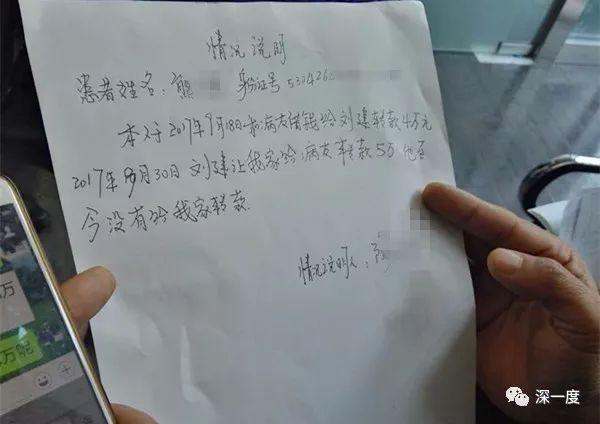 情况说明
患者姓名：熊 身份证号 530426
本人于2017年9月18日和病友借钱给刘建转款4万元
2017年9月30日刘建让我家给病友转款5万他至
今没有给我家转款.
情况说明人：
万
万呢
深一度